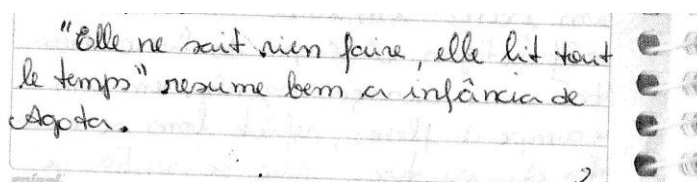 "Elle ne sait rien faire, elle lit tout
le temps" resume bem a infância de
Agota.